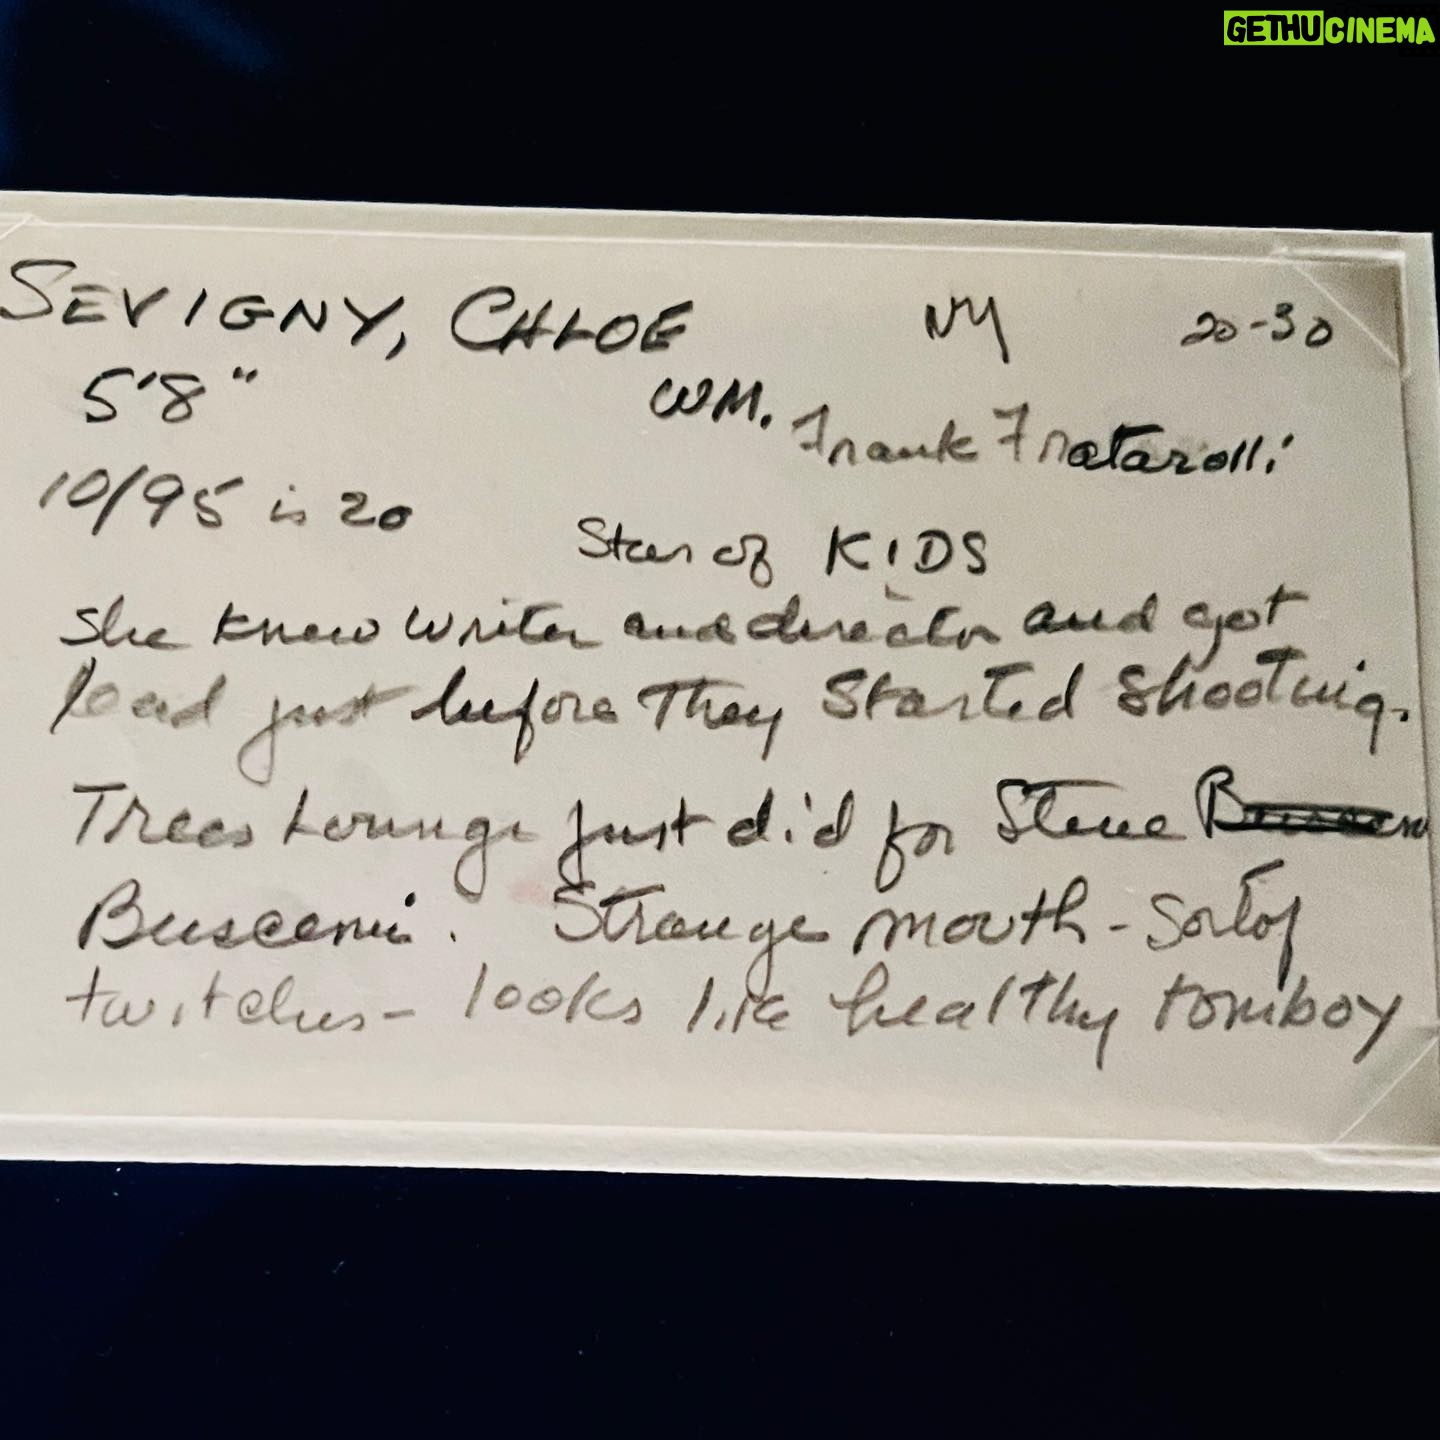 GETHUCINEMA
SEVIGNY, CHLOE NY 20-30
5'8" WM. Frank Fratarolli
10/95 is 20
Star of KIDS
She knew writer and director and got
lead just before They Started Shooting.
Trees Lounge just did for Steve
Buscemi. Strange mouth - Sort of
twitches - looks like healthy tomboy